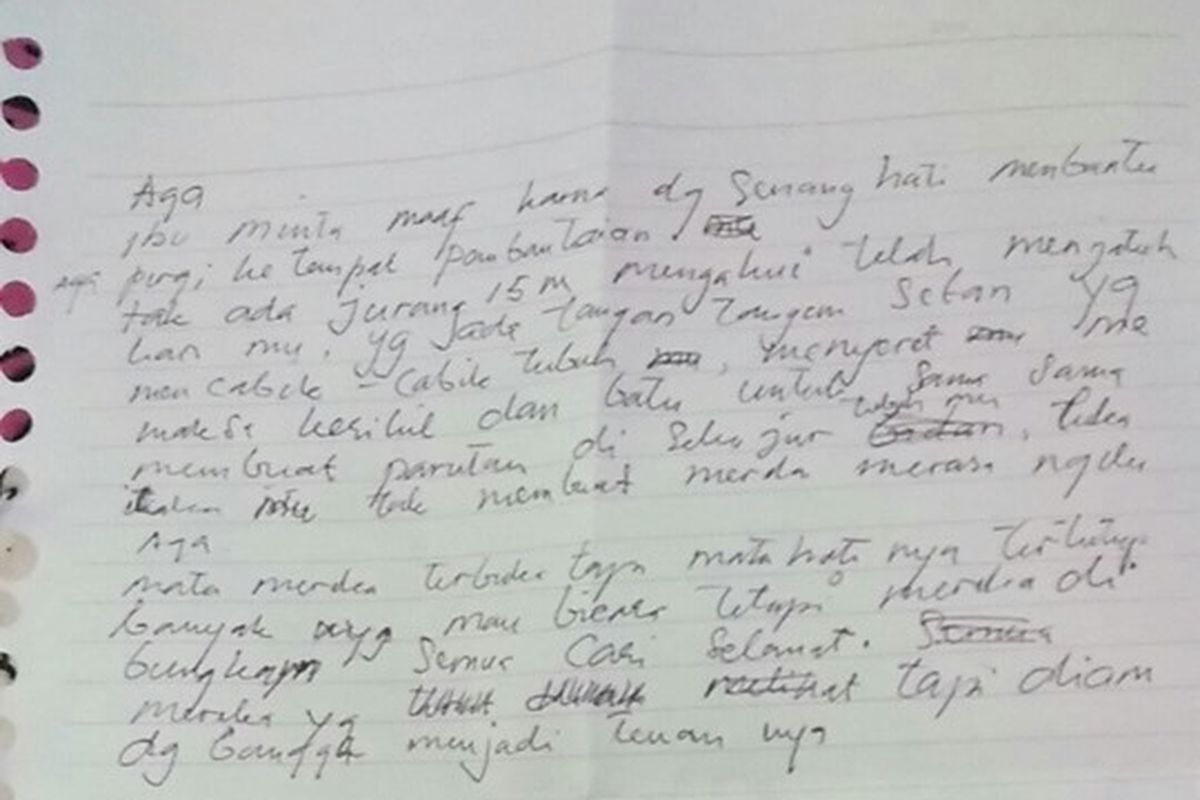 Aga
ibu minta maaf karna dg senang hati membantu
Aga pergi ke tempat pembantaian.
tak ada jurang 15 m mengakui telah menjatuh
kan mu, yg ada tangan tangan setan yg
mencabik-cabik tubuh, menyeret me
maksa kerikil dan batu untuk sama sama
membuat parutan di sekujur tubuh mu, luka
tak membuat mereka merasa ngilu
Aga
mata mereka terbuka tapi mata hati nya tertutup
banyak yg mau bicara tetapi mereka di
bungkam semua cari selamat.
mereka yg tapi diam
dg bangga menjadi teman nya